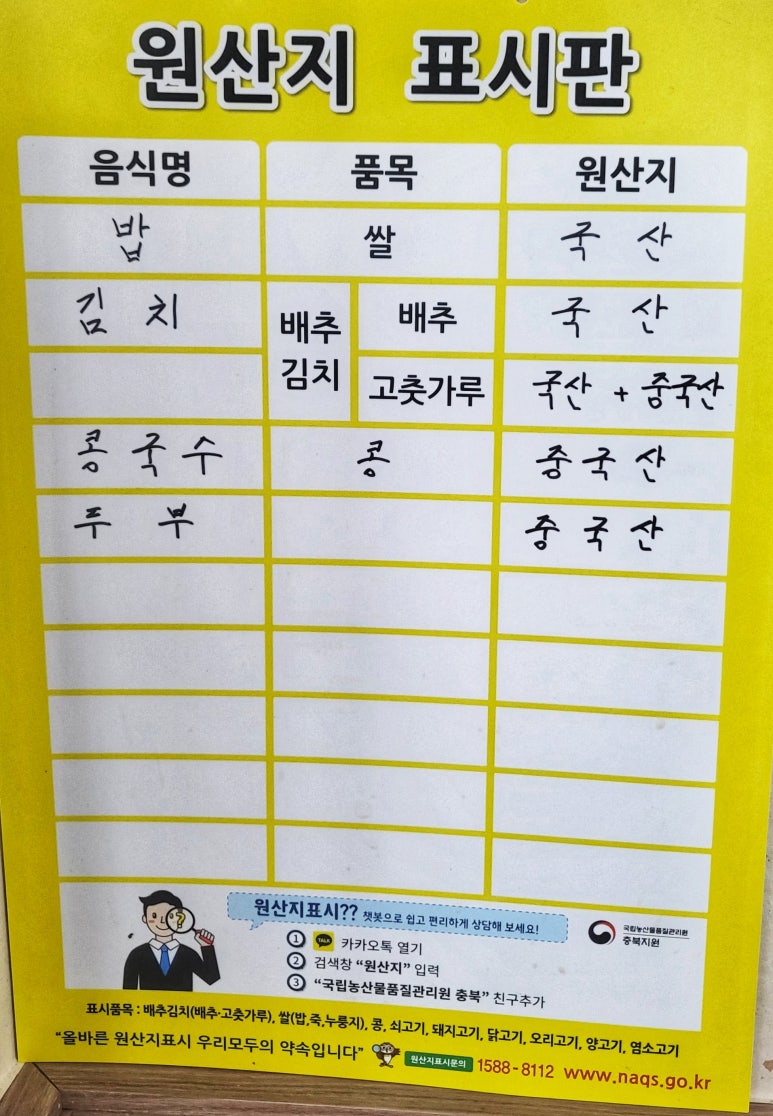 원산지 표시판
음식명 품목 원산지
밥 쌀 국 산
김 치 배추김치 배추 국 산
고춧가루 국산 + 중국산
콩 국 수 콩 중 국 산
두 부 중 국 산
원산지표시?? 챗봇으로 쉽고 편리하게 상담해 보세요!
1 TALK 카카오톡 열기
2 검색창 “원산지” 입력
3 “국립농산물품질관리원 충북” 친구추가
국립농산물품질관리원
충북지원
표시품목 : 배추김치(배추·고춧가루), 쌀(밥,죽,누룽지), 콩, 쇠고기, 돼지고기, 닭고기, 오리고기, 양고기, 염소고기
“올바른 원산지표시 우리모두의 약속입니다” 원산지표시문의 1588-8112 www.naqs.go.kr